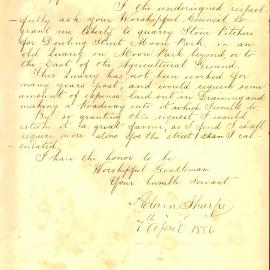 I the undersigned respect
fully ask your Worshipful Council to
grant me liberty to quarry Stone Pitchers
for Dowling Street Moore Park, in an
old Quarry on Moore Park beyond or to
the East of the Agricultural Ground.
This Quarry has not been worked for
many years past, and would require some
amount of expense laid out in Draining and
making a Roadway into it which I would do
By so granting this request I would
esteem it a great favour, as I find I shall
require more stone for the street than I cal
culated,
I have the honor to be
Worshipful Gentlemen
Your humble Servant
Adam Sharpe
7th April 1886